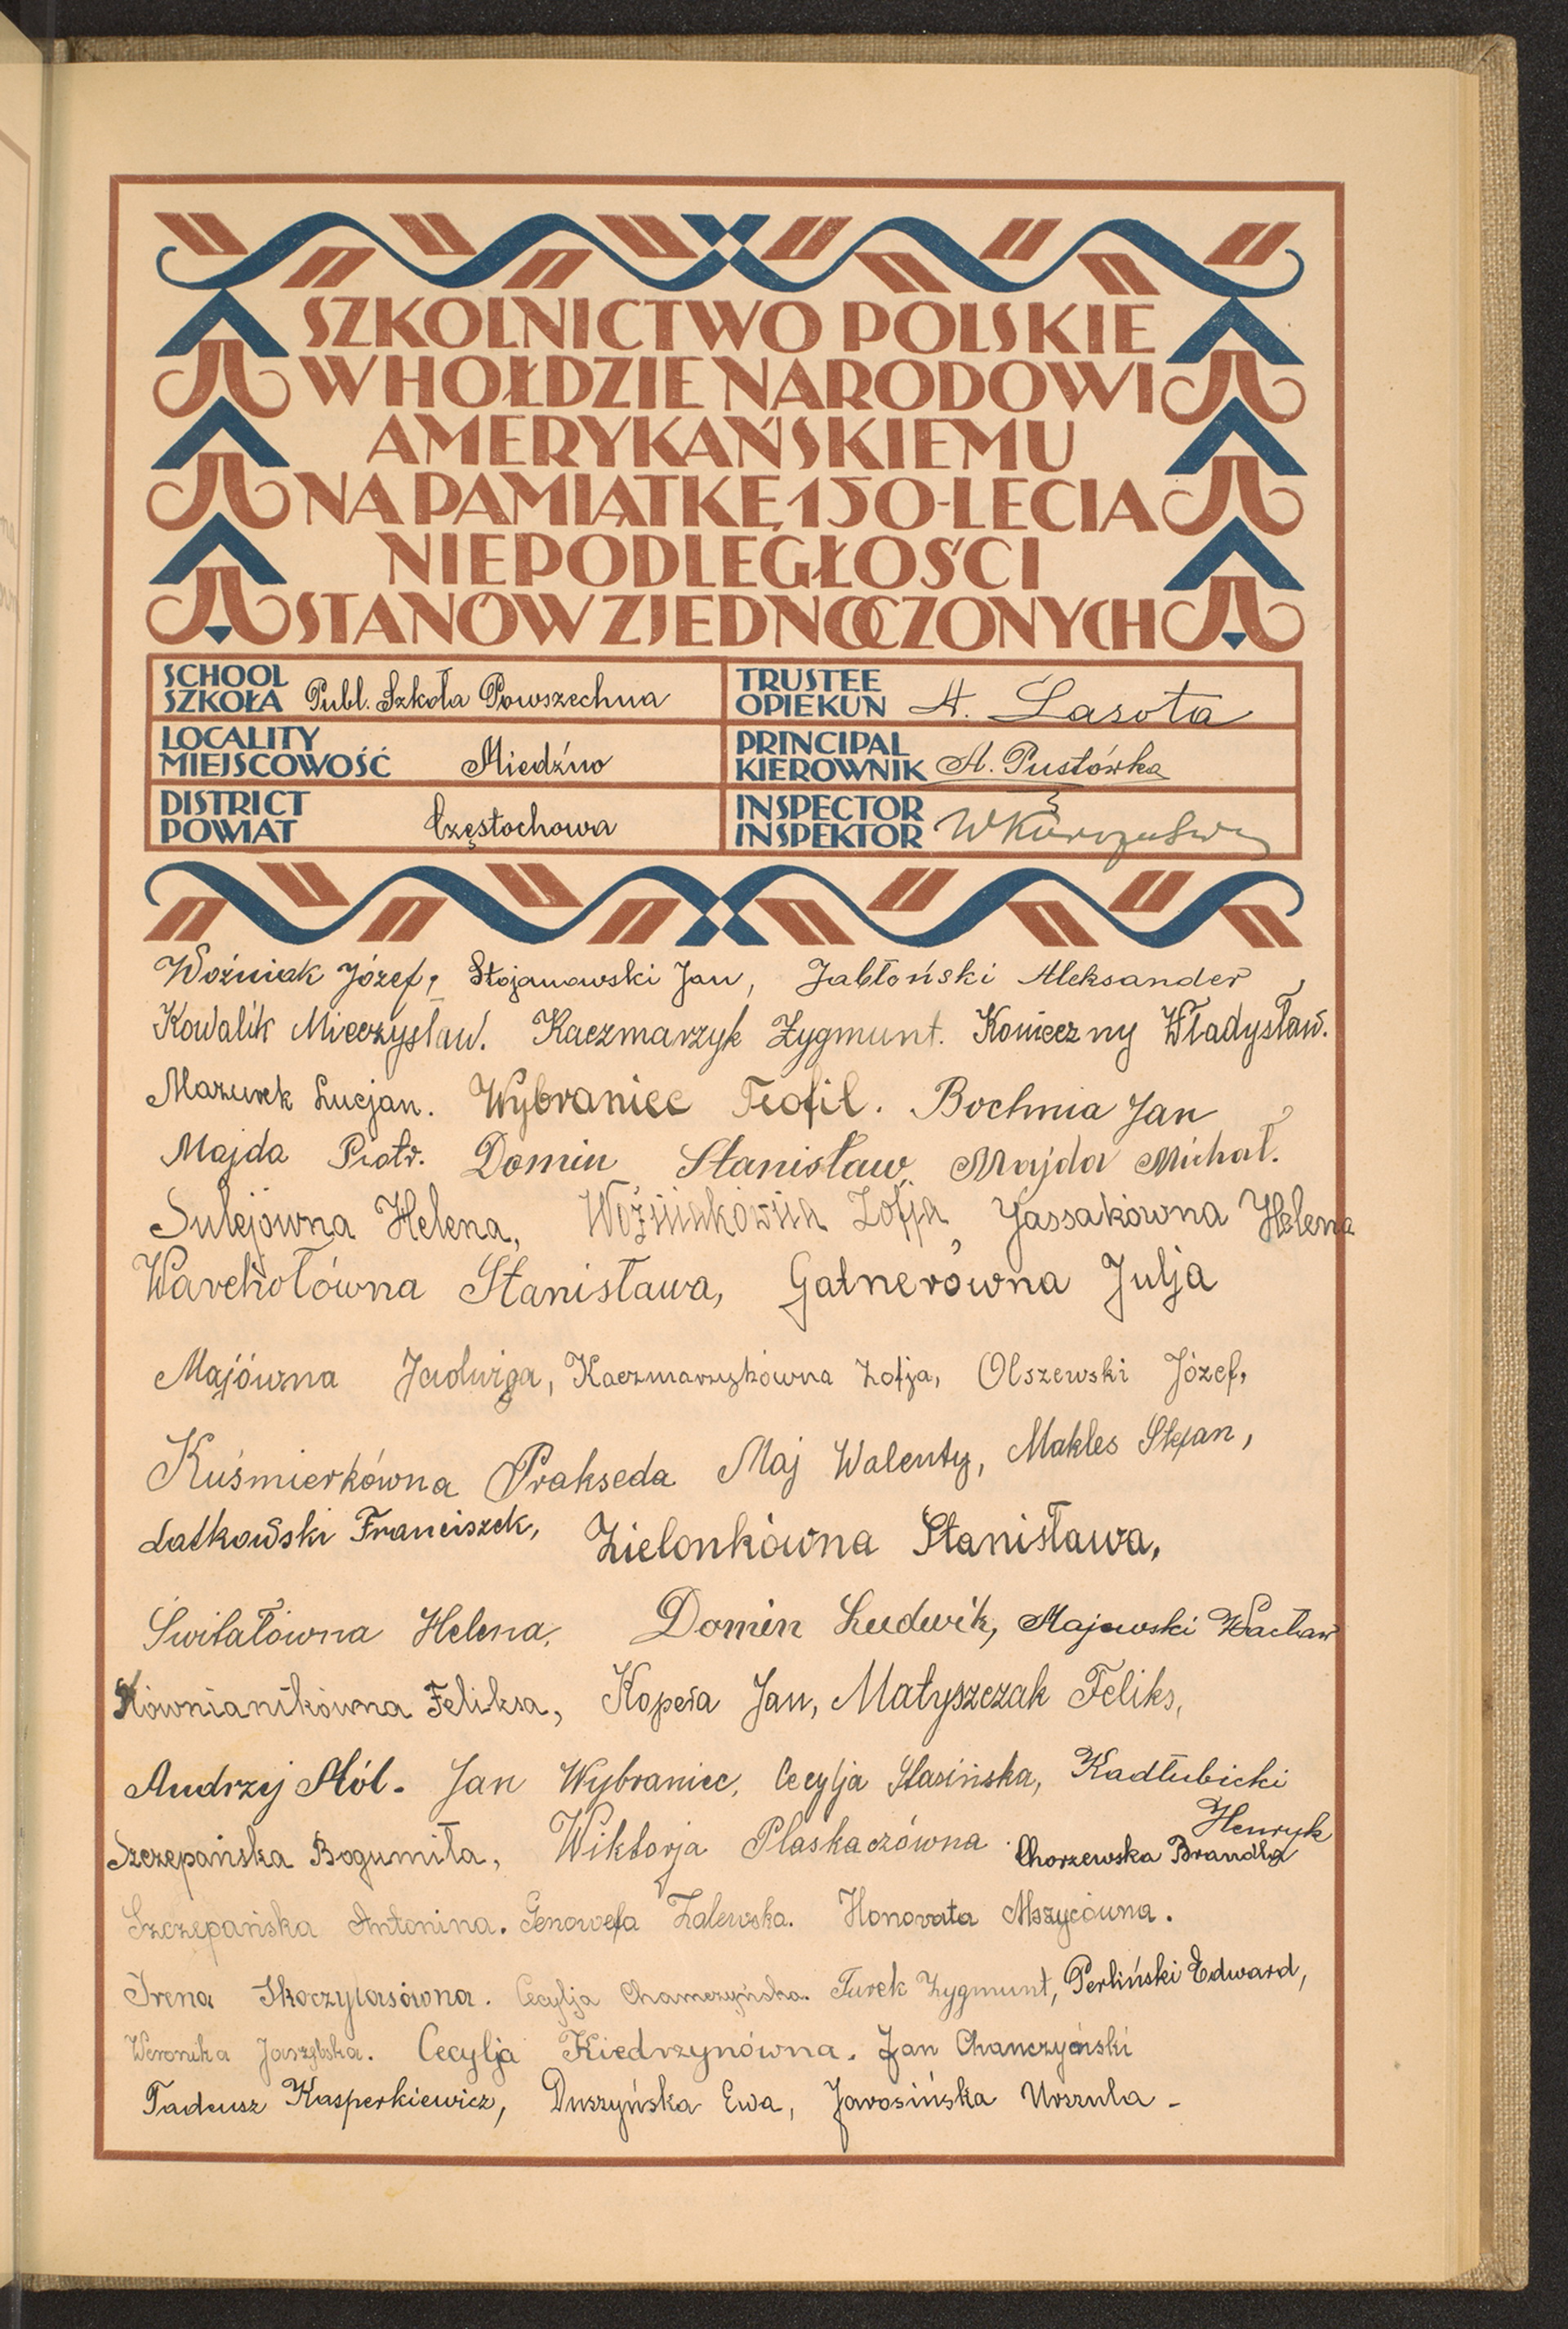 SZKOLNICTWO POLSKIE
W HOŁDZIE NARODOWI
AMERYKAŃSKIEMU
NA PAMIĄTKĘ 150-LECIA
NIEPODLEGŁOŚCI
STANÓW ZJEDNOCZONYCH
SCHOOL
SZKOŁA Publ. Szkoła Powszechna
TRUSTEE
OPIEKUN A. Lasota
LOCALITY
MIEJSCOWOŚĆ Miedźno
PRINCIPAL
KIEROWNIK A. Pustówka
DISTRICT
POWIAT Częstochowa
INSPECTOR
INSPEKTOR
Woźniak Józef, Stojanowski Jan, Jabłoński Aleksander,
Kowalik Mieczysław. Kaczmarzyk Zygmunt. Konieczny Władysław.
Mazurek Lucjan. Wybraniec Teofil. Bochnia Jan
Majda Piotr. Domin Stanisław, Majda Michał.
Sulejówna Helena, Woźniakówna Zofja, Jassakówna Helena
Warchołówna Stanisława, Gatnerówna Julja
Majówna Jadwiga, Kaczmarzykówna Zofja, Olszewski Józef,
Kuśmierkówna Prakseda Maj Walenty, Makles Stefan,
Latkowski Franciszek, Zielonkówna Stanisława,
Świtałówna Helena, Domin Ludwik, Majewski Wacław
Równianikówna Feliksa, Kopera Jan, Matyszczak Feliks,
Andrzej Mól. Jan Wybraniec, Cecylja Stasińska, Kadłubicki
Henryk
Szczepańska Bogumiła, Wiktorja Płaskaczówna. Chorzewska Brandla
Szczepańska Antonina. Genowefa Zalewska. Honorata Mszycówna.
Irena Skoczylasówna. Cecylja Chamczyńska. Turek Zygmunt, Perliński Edward,
Weronika Cecylja Kiedrzynówna. Jan Chanczyński
Tadeusz Kasperkiewicz, Duszyńska Ewa, Jarosińska Urszula -